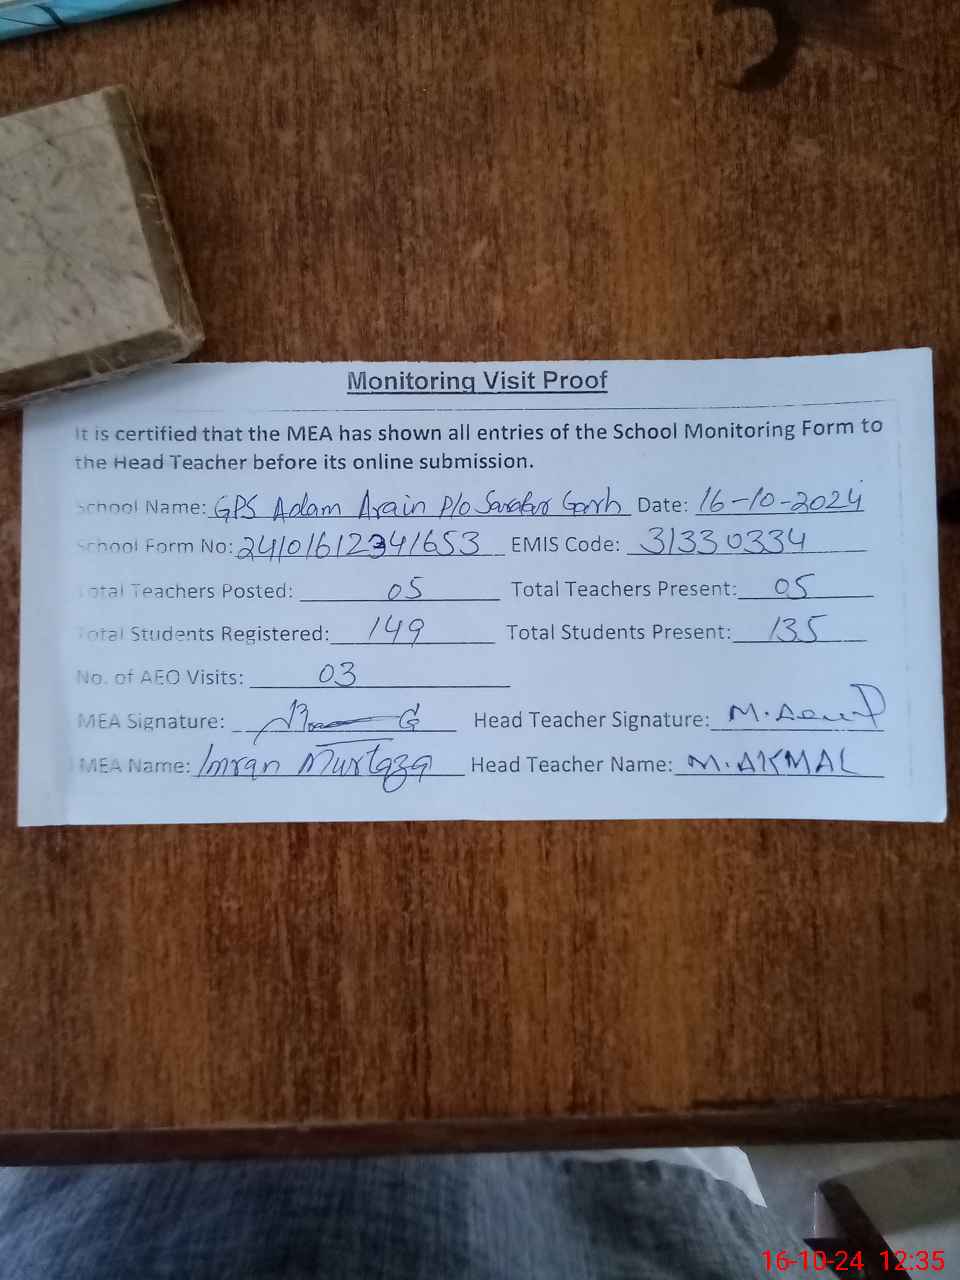 Monitoring Visit Proof
It is certified that the MEA has shown all entries of the School Monitoring Form to
the Head Teacher before its online submission.
School Name: GPS Adam Arain P/o Garh Date: 16-10-2024
School Form No: 241016122341653 EMIS Code: 31330334
Total Teachers Posted: 05 Total Teachers Present: 05
Total Students Registered: 149 Total Students Present: 135
No. of AEO Visits: 03
MEA Signature: Head Teacher Signature:
MEA Name: Imran Murtaza Head Teacher Name: M. AKMAL
16-10-24 12:35